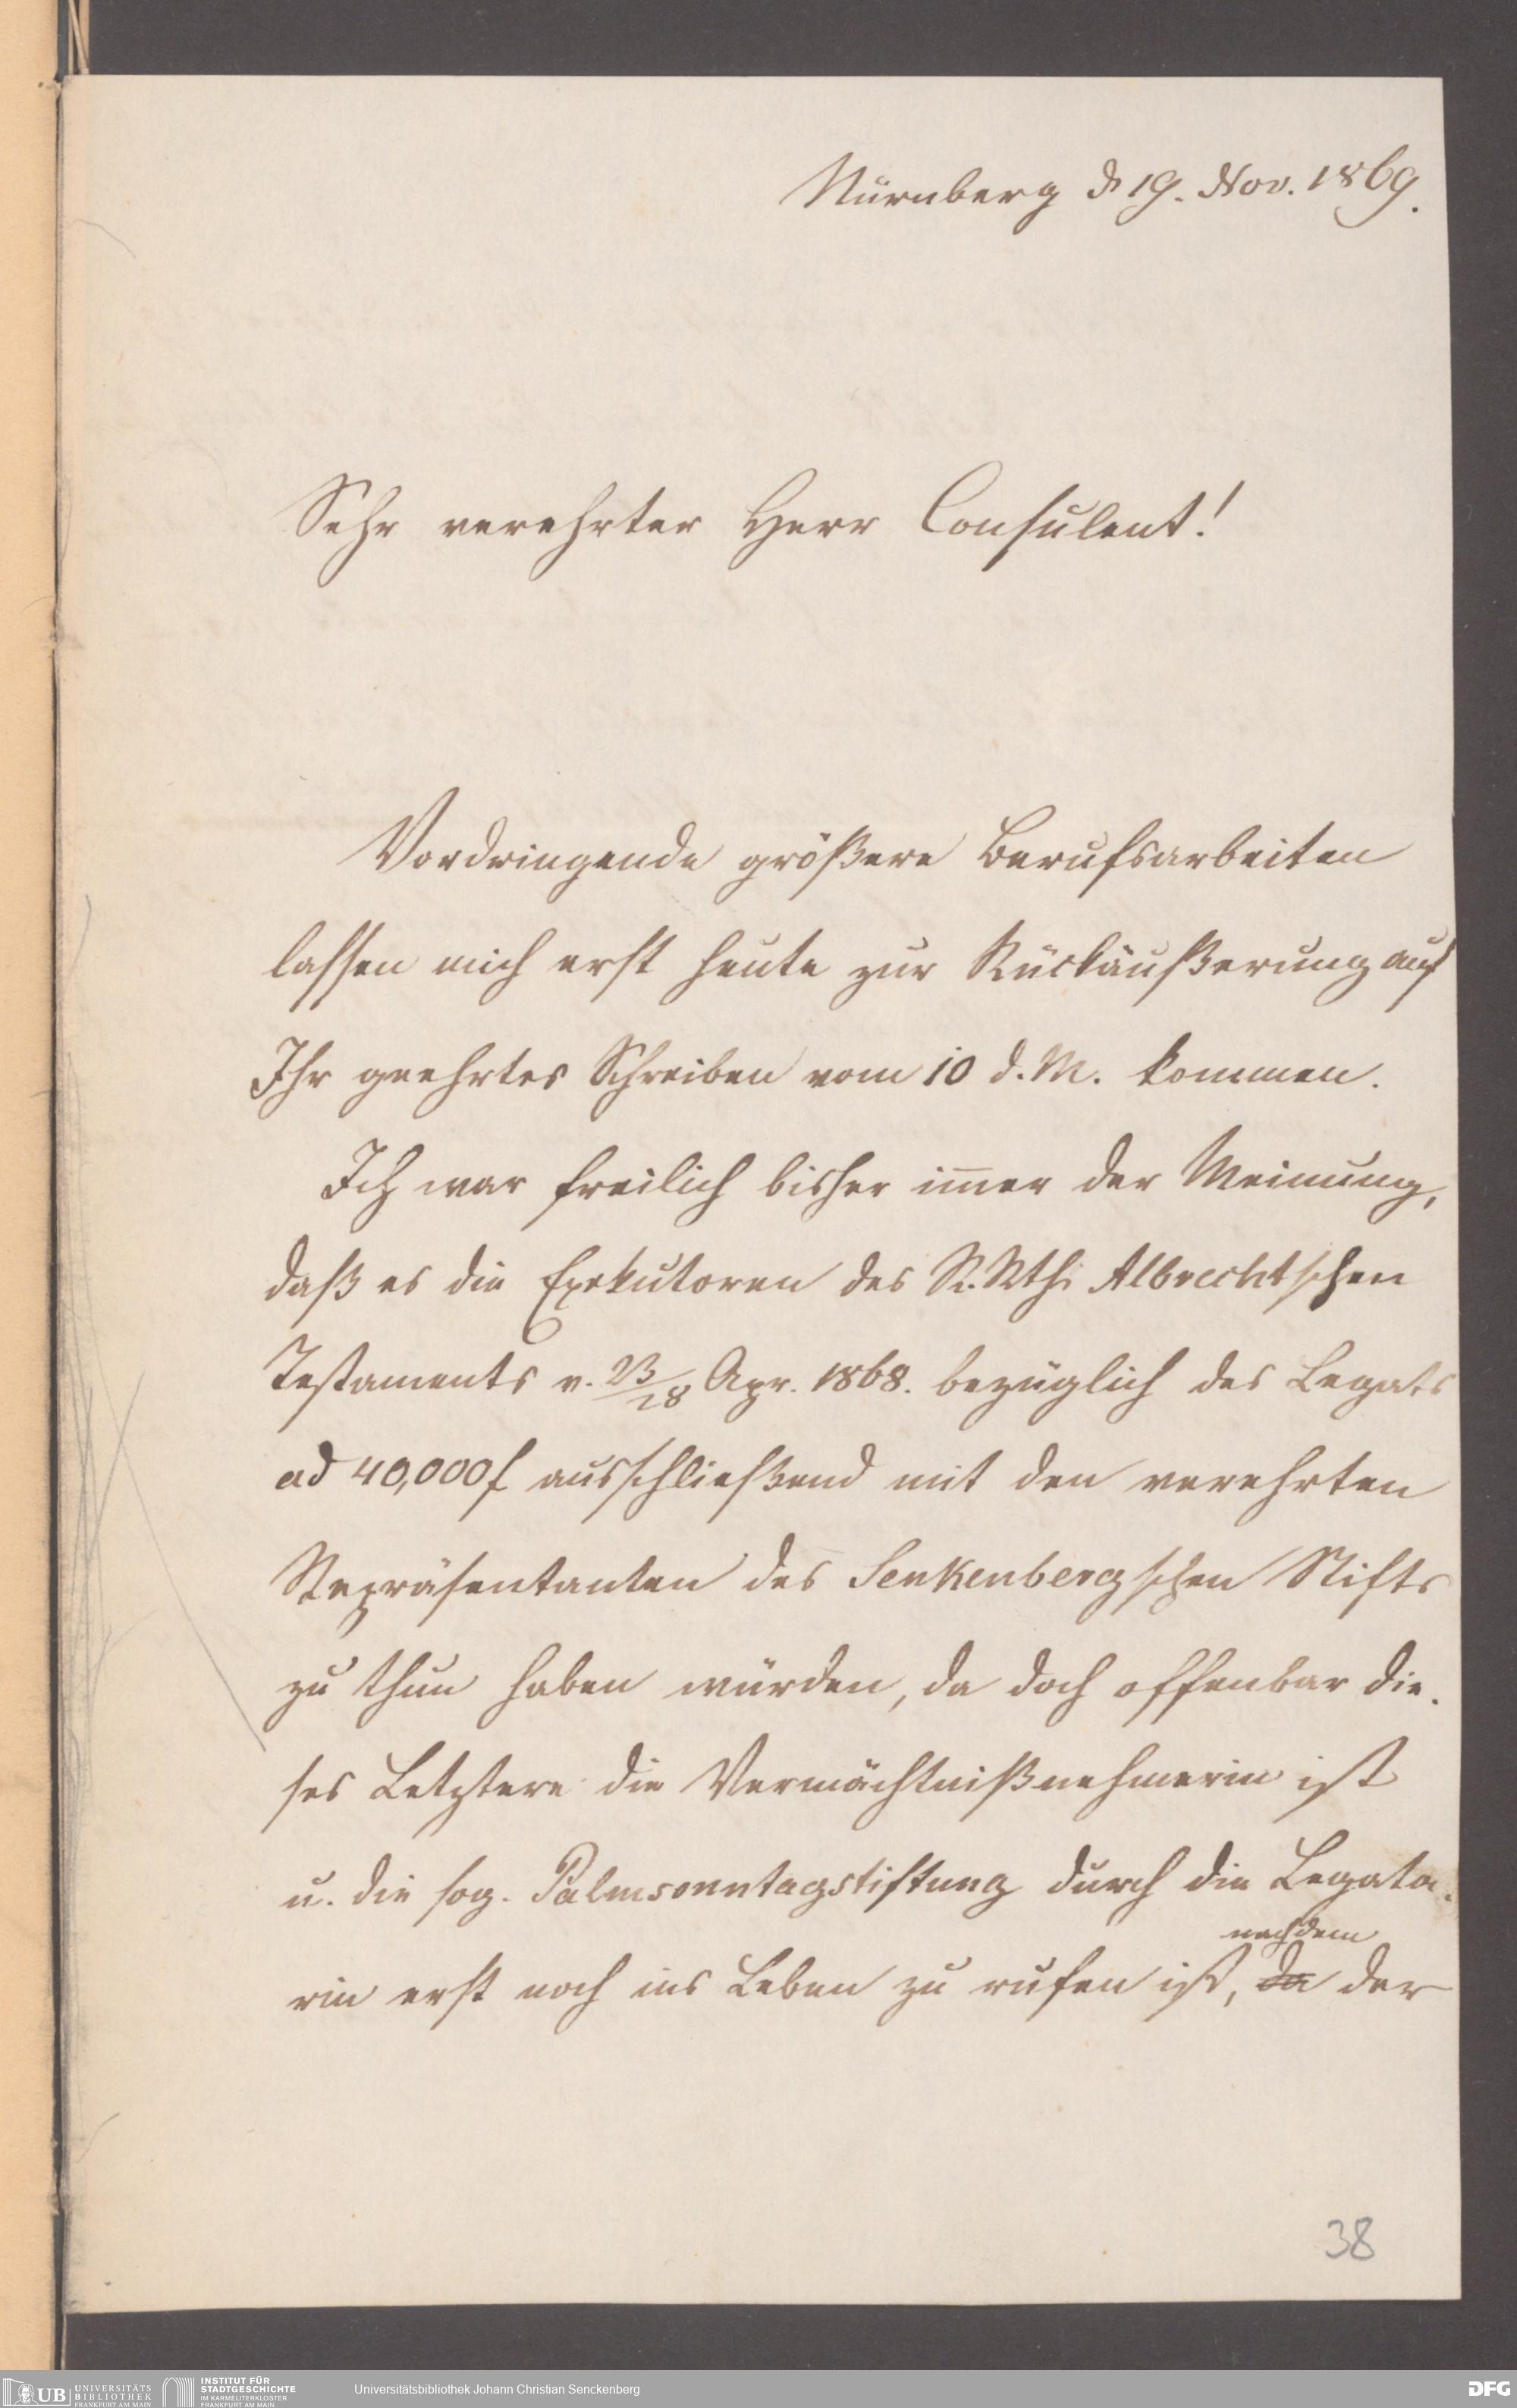 Nürnberg d 19. Nov. 1869.
Sehr verehrter Herr Consulent!
Vordringende größere Berufsarbeiten
lassen mich erst heute zur Rückäußerung auf
Ihr geehrtes Schreiben vom 10 d. M. kommen.
Ich war freilich bisher im̅er der Meinung,
daß es die Exekutoren des R. Rths Albrechtschen
Testaments v. 23/28 Apr. 1868. bezüglich des Legats
ad 40,000 f ausschließend mit den verehrten
Repräsentanten des Senkenbergschen Stifts
zu thun haben würden, da doch offenbar die-
ses Letztere die Vermächtnißnehmerin ist
u. die sog. Palmsonntagstiftung durch die Legata-
nachdem
rin erst noch ins Leben zu rufen ist, da der
38
UB UNIVERSITÄTS
BIBLIOTHEK
FRANKFURT AM MAIN
INSTITUT FÜR
STADTGESCHICHTE
IM KARMELITERKLOSTER
FRANKFURT AM MAIN
Universitätsbibliothek Johann Christian Senckenberg
DFG